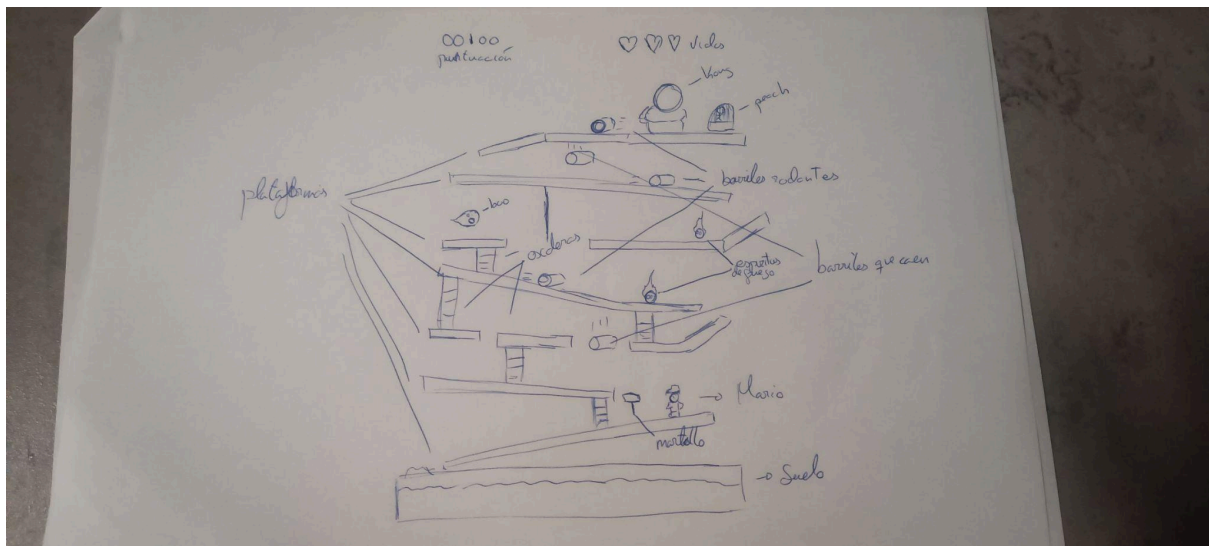 00100
puntuación
vidas
Kong
peach
barriles rodantes
plataformas
boo
escaleras
espiritus
de fuego
barriles que caen
Mario
martillo
Suelo